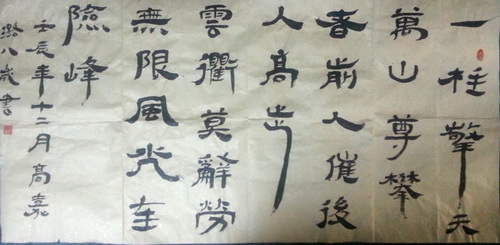 一柱擎天
萬山尊攀
者前人催後
人高步
雲衢莫辭勞
無限風光在
險峰
壬辰年十二月高嘉
潞八歲書